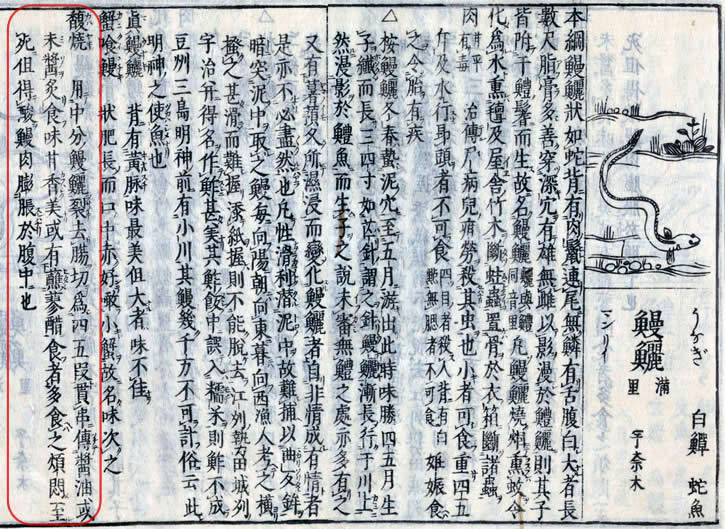 うなぎ
白鱓 蛇魚
鰻鱺 滿里 宇奈木
マンリイ
本綱鰻鱺狀如蛇背有肉鬣連尾無鱗有舌腹白大者長
數尺脂膏多善穿深穴有雄無雌以影漫於鱧鱺則其子
皆附于鱧鬐而生故名鰻鱺 鱺與鱧同音里 凡鰻鱺燒烟熏蚊令
化爲水熏氊及屋舍竹木斷蛀蟲置骨於衣箱斷諸蟲
肉 甘平有毒 治傳尸病兒疳勞殺其虫也小者可食重四五
斤及水行昂頭者不可食 四目者殺人背有白㸃無鰓者不可食 妊娠食
之令胎有疾
△按鰻鱺冬春蟄泥穴至五月游出此時味勝四五月生
子纎而長三四寸如大針謂之針鰻鱺漸長行于川上
然漫影於鱧魚而生子之說未審無鱧之處亦多有之
又有薯蕷久所濕浸而變化鰻鱺者自非情成有情者
是亦不必盡然也凡性滑利潜泥中故難捕以曲叉鉾
暗突泥中取之鰻每向陽朝向東暮向西漁人考之橫
搔之甚滑而難握濡紙握則不能脫去江州勢田城州
宇治丹得名作鮓甚美其鮓飯中誤入糯米則鮓不成
豆州三島明神前有小川其鰻幾千万不可計俗云此
明神之使魚也
眞鰻鱺 背有黃脉味最美但大者味不佳
蟹喰鰻 狀肥長而口中赤好噉小蟹故名味次之
馥燒 用中分鰻鱺裂去膓切爲四五段貫串傳醬油或
未醬炙食味甘香美或有蘸蓼醋食者多食之煩悶至
死但得酸鰻肉膨脹於腹中也